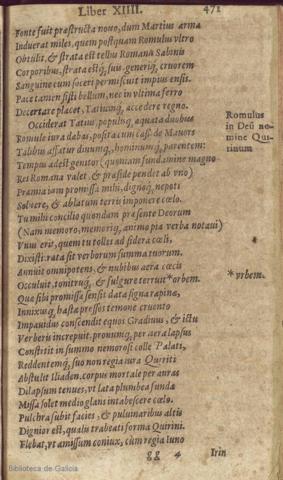 Liber XIIII. 471
Fonte fuit præstructa nouo, dum Martius arma
Induerat miles, quem postquam Romulus vltro
Obtulit, & strata est tellus Romana Sabinis
Corporibus, strata estq́; suis: generiq́; cruorem
Sanguine cum soceri permiscuit impius ensis.
Pace tamen sisti bellum, nec in vltima ferro
Decertare placet, Tatiumq́; accedere regno.
Occiderat Tatius, populisq́; æquata duobus
Romule iura dabas, posita cum casside Mauors
Talibus affatur diuumq́; hominumq́; parentem:
Tempus adest genitor (quoniam fundamine magno
Res Romana valet, & præside pendet ab vno)
Præmia iam promissa mihi, dignoq́; nepoti
Soluere, & ablatum terris imponere cœlo.
Tu mihi concilio quondam præsente Deorum
(Nam memoro, memoriq́; animo pia verba notaui)
Vnus erit, quem tu tolles ad sidera cœli,
Dixisti: rata sit verborum summa tuorum.
Annuit omnipotens, & nubibus aera cœcis
Occuluit, tonitruq́; & fulgure terruit *orbem.
Quæ sibi promissa sensit data signa rapinæ,
Innixusq́; hasta pressos temone cruento
Impauidus conscendit equos Gradiuus, & ictu
Verberis increpuit: pronumq́; per aera lapsus
Constitit in summo nemorosi colle Palati,
Reddentemq́; suo non regia iura Quiriti
Abstulit Iliaden. corpus mortale per auras
Dilapsum tenues, vt lata plumbea funda
Missa solet medio glans intabescere cœlo.
Pulchra subit facies, & puluinaribus altis
Dignior est, qualis trabeati forma Quirini.
Flebat, vt amissum coniux, cùm regia Iuno
gg 4 Irin
Romulus
in Deũ no-
mine Qui-
rinum
*vrbem.
Biblioteca de Galicia